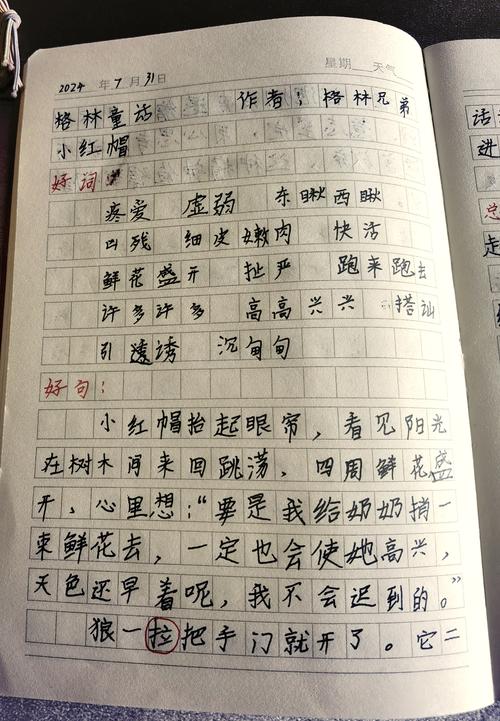 2024年7月31日 星期 天气
格林童话 作者：格林兄弟
小红帽
好词
疼爱 虚弱 东瞅西瞅
凶残 细皮嫩肉 快活
鲜花盛开 扯严 跑来跑去
许多许多 高高兴兴 搭讪
引诱 沉甸甸
好句：
小红帽抬起眼帘，看见阳光
在树木间来回跳荡，四周鲜花盛
开，心里想：“要是我给奶奶捎一
束鲜花去，一定也会使她高兴，
天色还早着呢，我不会迟到的。”
狼一拉把手门就开了。它二
话
进
总
走